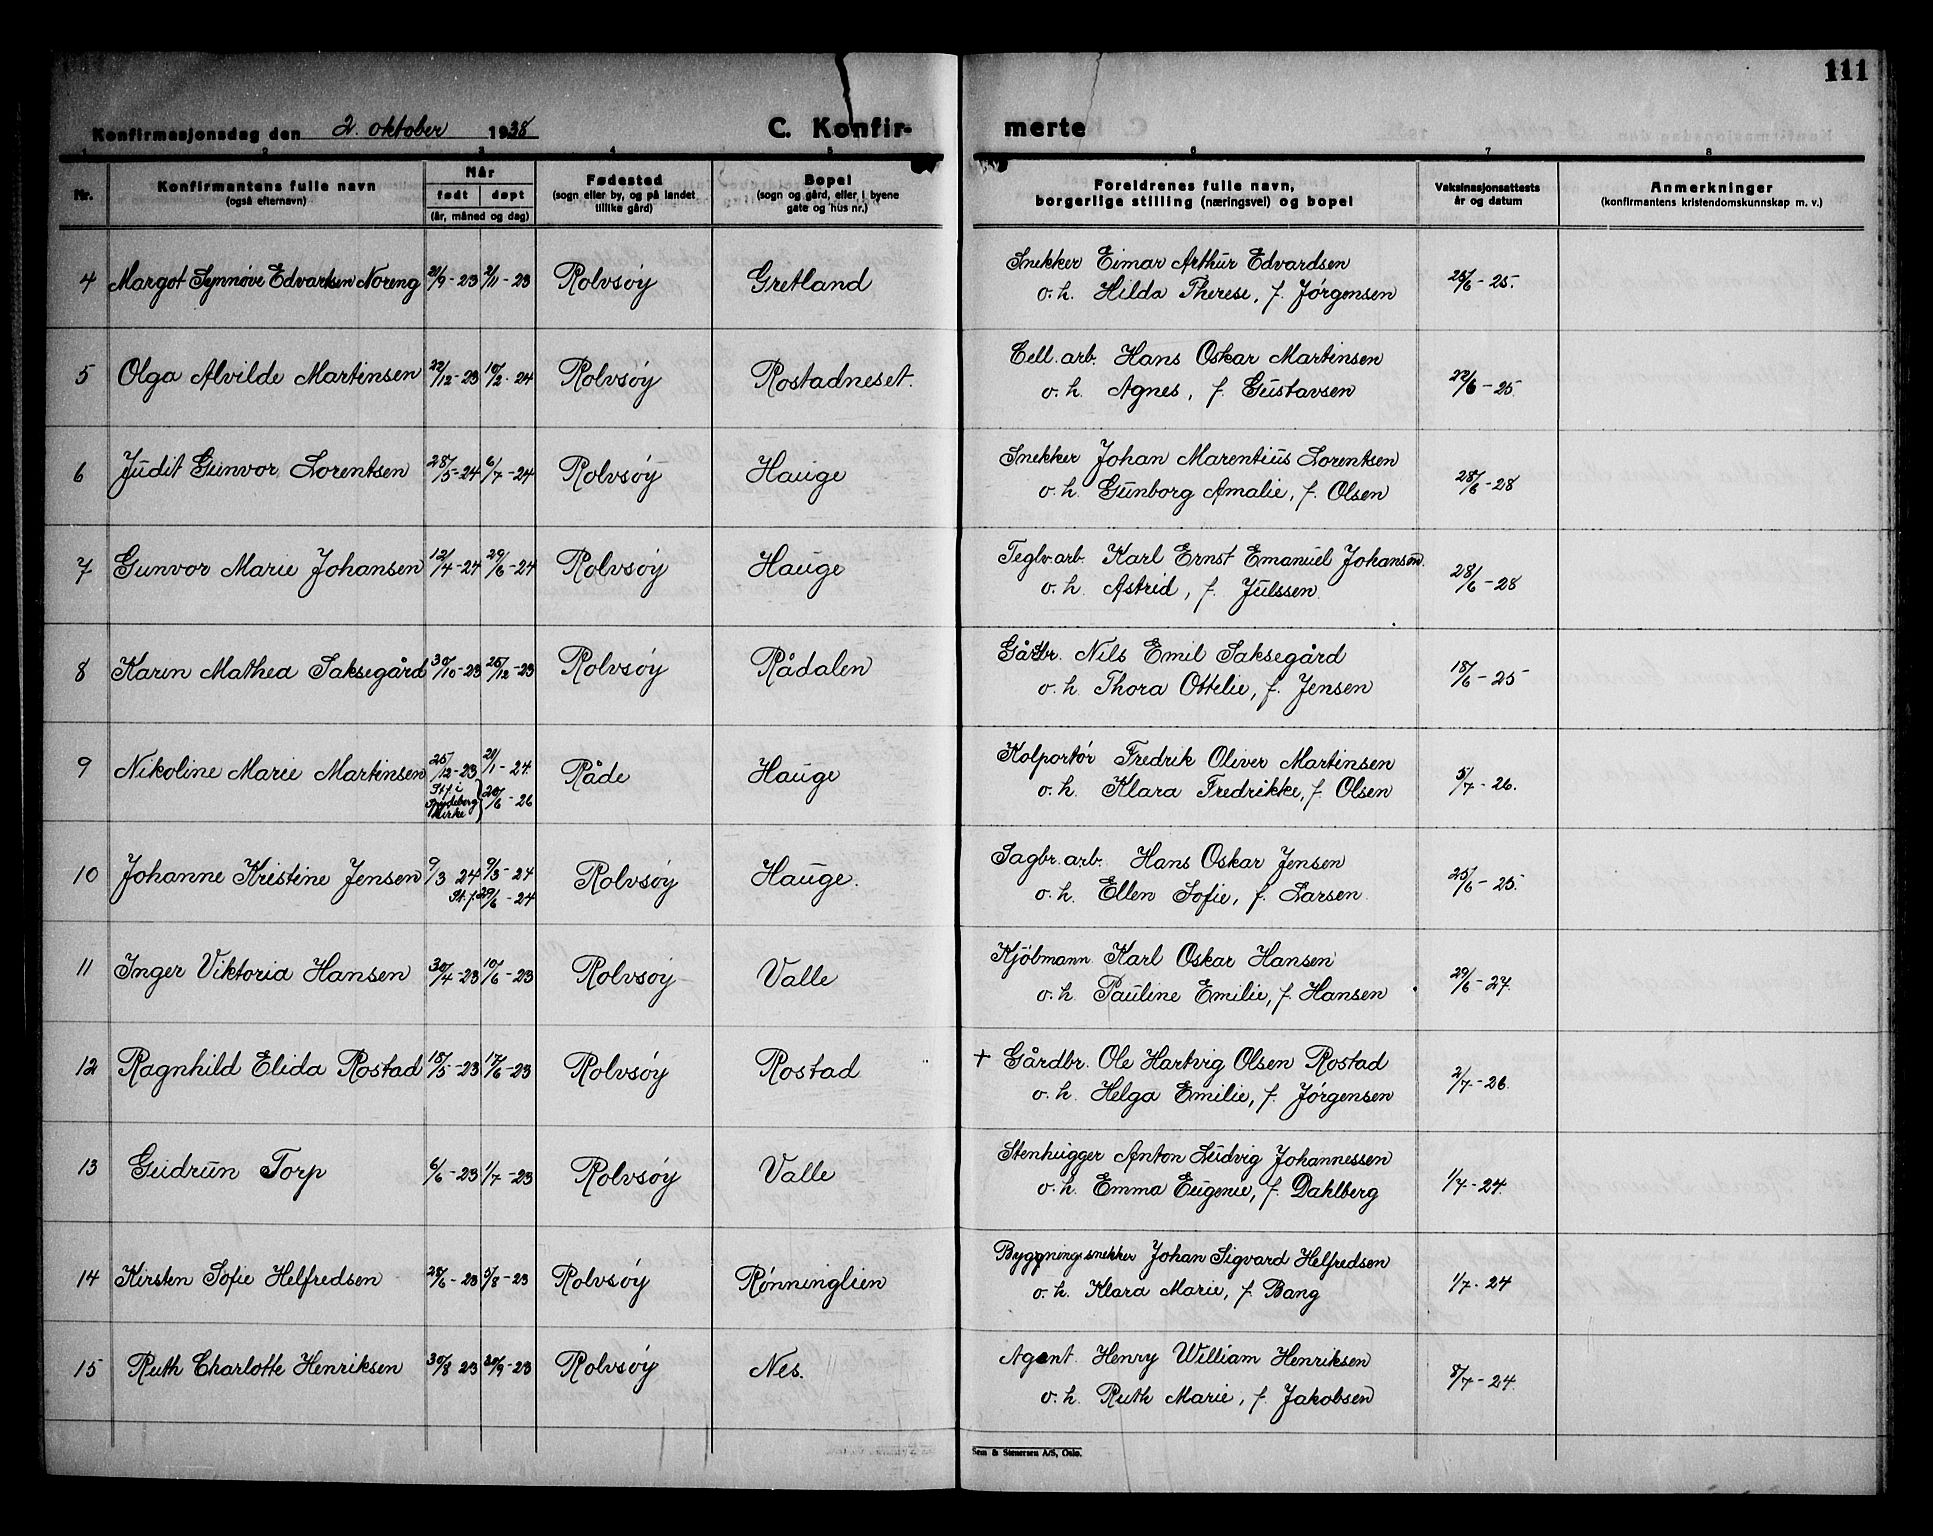 111
Konfirmasjonsdag den 2. oktober 1938 C. Konfirmerte
1 2 3 4 5 6 7 8
Nr. Konfirmantens fulle navn (også efternavn) Når født døpt (år, måned og dag) Fødested (sogn eller by, og på landet tillike gård) Bopel (sogn og gård, eller i byene gate og hus nr.) Foreldrenes fulle navn, borgerlige stilling (næringsvei) og bopel Vaksinasjonsattests år og datum Anmerkninger (konfirmantens kristendomskunnskap m. v.)
4 Margot Synnøve Edvartsen Noreng 21/9-23 2/11-23 Rolvsøy Gretland Snekker Eimar Arthur Edvardsen 25/6-25.
o. h. Hilda Therese, f. Jørgensen
5 Olga Alvilde Martinsen 22/12-23 10/2-24 Rolvsøy Rostadneset. Cell. arb. Hans Oskar Martinsen 22/6-25.
o. h. Agnes, f. Gustavsen
6 Judit Gunvor Lorentsen 28/5-24 6/7-24 Rolvsøy Hauge Snekker Johan Marentius Lorentsen 28/6-28
o. h. Gunborg Amalie, f. Olsen
7 Gunvor Marie Johansen 12/4-24 29/6-24 Rolvsøy Hauge Teglv. arb. Karl Ernst Emanuel Johansen. 28/6-28
o. h. Astrid, f. Julssen.
8 Karin Mathea Saksegård 30/10-23 25/12-23 Rolvsøy Rådalen Gårdbr. Nils Emil Saksegård 18/6-25
o. h. Thora Ottelie, f. Jensen
9 Nikoline Marie Martinsen 25/12-23 21/1-24. Råde Hauge Kolportør Fredrik Oliver Martinsen 5/7-26.
St. f. i Spydeberg Kirke } 20/6-26 o. h. Klara Fredrikke, f. Olsen
10 Johanne Kristine Jensen 9/3 24 9/3-24 Rolvsøy Hauge. Sagbr. arb. Hans Oskar Jensen 25/6-25.
St. f. 29/6-24 o. h. Ellen Sofie, f. Larsen.
11 Inger Viktoria Hansen 30/4-23 10/6-23 Rolvsøy Valle Kjøbmann Karl Oskar Hansen 29/6-27.
o. h. Pauline Emilie, f. Hansen
12 Ragnhild Elida Rostad 18/5-23 17/6-23 Rolvsøy Rostad + Gårdbr. Ole Hartvig Olsen Rostad 2/7-26.
o. h. Helga Emilie, f. Jørgensen
13 Gudrun Torp 6/6-23 1/7-23 Rolvsøy Valle Stenhugger Anton Ludvig Johannessen 1/7-24.
o. h. Emma Eugenie, f. Dahlberg
14 Kirsten Sofie Helfredsen 28/6-23 5/8-23 Rolvsøy Rønninglien Byggningssnekker Johan Sigvard Helfredsen 1/7-24
o. h. Klara Marie, f. Bang
15 Ruth Charlotte Henriksen 30/8 23 30/9-23 Rolvsøy Nes. Agent. Henry William Henriksen 8/7-24.
o. h. Ruth Marie, f. Jakobsen
Sem & Stenersen A/S, Oslo.